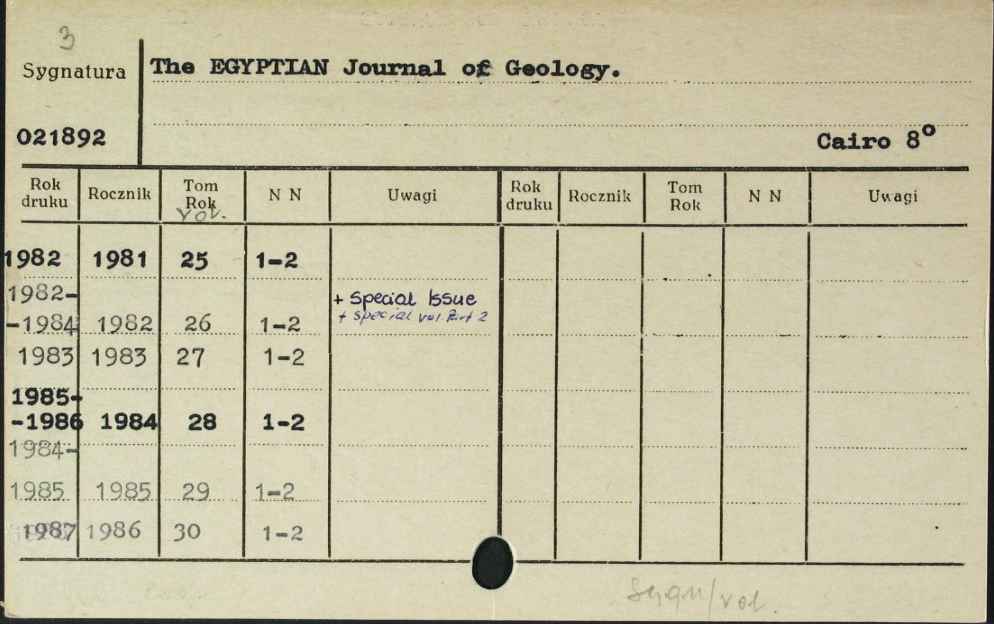 3
Sygnatura The EGYPTIAN Journal of Geology.
021892 Cairo 8°
Rok druku Rocznik Tom Rok vol. N N Uwagi Rok druku Rocznik Tom Rok N N Uwagi
1982 1981 25 1-2
1982- + Special Issue
-1984 1982 26 1-2 + special vol Part 2
1983 1983 27 1-2
1985-
-1986 1984 28 1-2
1984-
1985 1985 29 1-2
1987 1986 30 1-2
Sygn/vol.